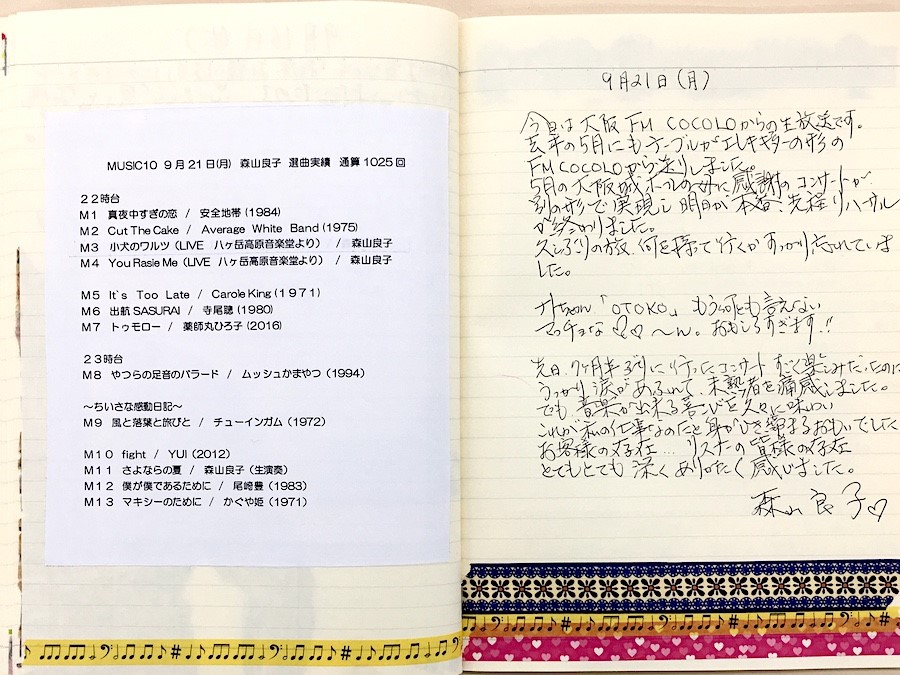 MUSIC10 9月21日(月) 森山良子 選曲実績 通算1025回
22時台
M1 真夜中すぎの恋 / 安全地帯(1984)
M2 Cut The Cake / Average White Band(1975)
M3 小犬のワルツ(LIVE 八ヶ岳高原音楽堂より) / 森山良子
M4 You Rasie Me(LIVE 八ヶ岳高原音楽堂より) / 森山良子
M5 It`s Too Late / Carole King(1971)
M6 出航 SASURAI / 寺尾聰(1980)
M7 トゥモロー / 薬師丸ひろ子(2016)
23時台
M8 やつらの足音のバラード / ムッシュかまやつ(1994)
～ちいさな感動日記～
M9 風と落葉と旅びと / チューインガム(1972)
M10 fight / YUI(2012)
M11 さよならの夏 / 森山良子(生演奏)
M12 僕が僕であるために / 尾崎豊(1983)
M13 マキシーのために / かぐや姫(1971)
9月21日(月)
今日は大阪 FM COCOLOからの生放送です。
去年の5月にもテーブルがエレキギターの形の
FM COCOLOから送りしました。
5月の大阪城ホールの 感謝のコンサートが
別の形で実現し 明日が本番、先程リハーサル
が終わりました。
久しぶりの旅、何を持って行くかすっかり忘れていま
した。
「OTOKO」もう何とも言えない
マッチョな♡♡〜ん。おもしろすぎます!!
先日、7ヶ月半ぶりに行ったコンサート すごく楽しみだったのに
うっかり涙があふれて 未熟者を痛感しました。
でも音楽が出来る喜びを久々に味わい
これが私の仕事なのだと身がひき締まるおもいでした
お客様の存在... リスナーの皆様の存在
とてもとても深くありがたく感じました。
森山良子♡